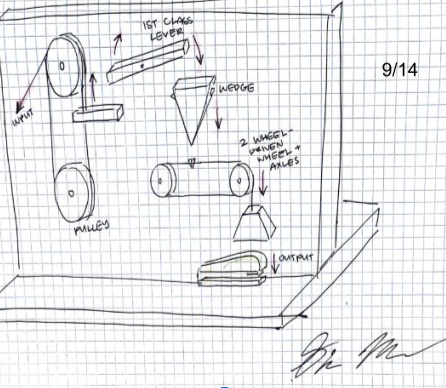 1ST CLASS
LEVER
9/14
INPUT
WEDGE
2 WHEEL-
DRIVEN
WHEEL +
AXLES
PULLEY
OUTPUT